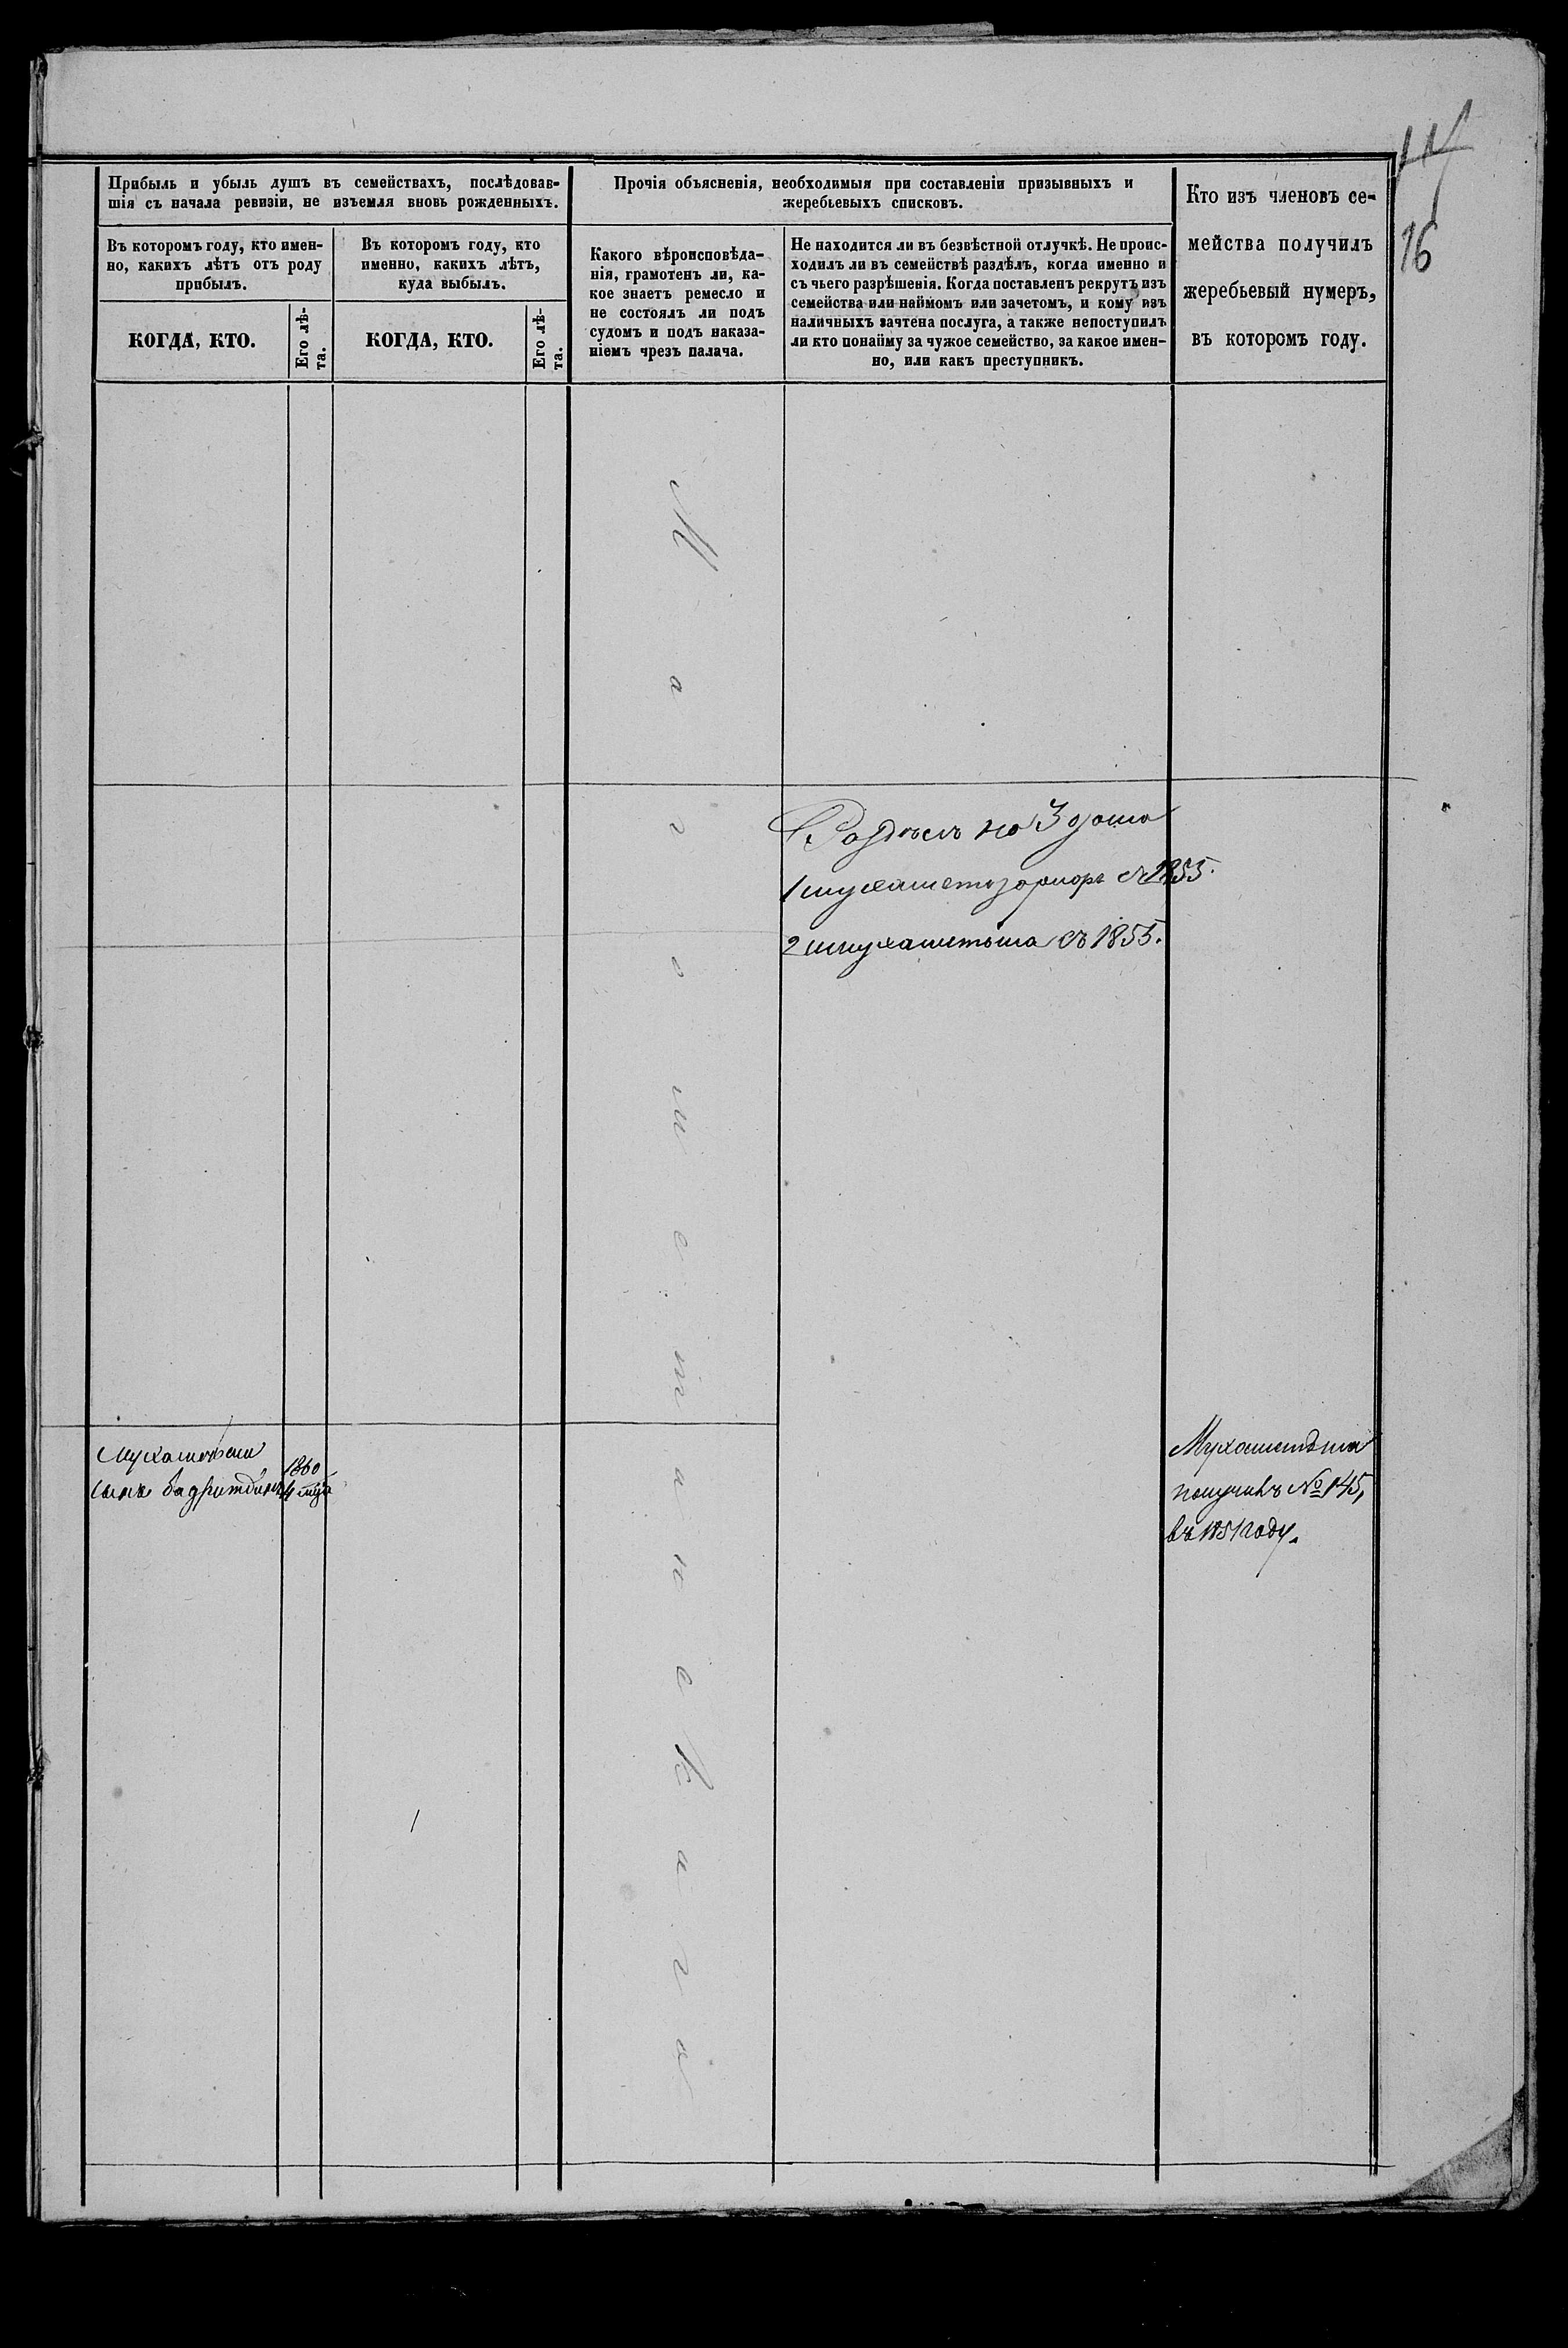 16
Прибыль и убыль душъ въ семействахъ, послѣдовав-
шія съ начала ревизіи, не изъемля вновь рожденныхъ.
Въ которомъ году, кто имен-
но, какихъ лѣтъ отъ роду
прибылъ.
КОГДА, КТО.
Его лѣ-
та.
Въ которомъ году, кто
именно, какихъ лѣтъ,
куда выбылъ.
КОГДА, КТО.
Его лѣ-
та.
Прочія объясненія, необходимыя при составленіи призывныхъ и
жеребьевыхъ списковъ.
Какого вѣроисповѣда-
нія, грамотенъ ли, ка-
кое знаетъ ремесло и
не состоялъ ли подъ
судомъ и подъ наказа-
ніемъ чрезъ палача.
Не находится ли въ безвѣстной отлучкѣ. Не проис-
ходилъ ли въ семействѣ раздѣлъ, когда именно и
съ чьего разрѣшенія. Когда поставленъ рекрутъ изъ
семейства или наймомъ или зачетомъ, и кому изъ
наличныхъ зачтена послуга, а также непоступилъ
ли кто понайму за чужое семейство, за какое имен-
но, или какъ преступникъ.
Кто изъ членовъ се-
мейства получилъ
жеребьевый нумеръ,
въ которомъ году.
Магометанскаго
Раздѣлъ на 3 дома
1 съ 1855.
2 съ 1855.
сынъ Бадритдинъ
1860
4 м̃ца
получилъ № 145,
въ 1851 году.